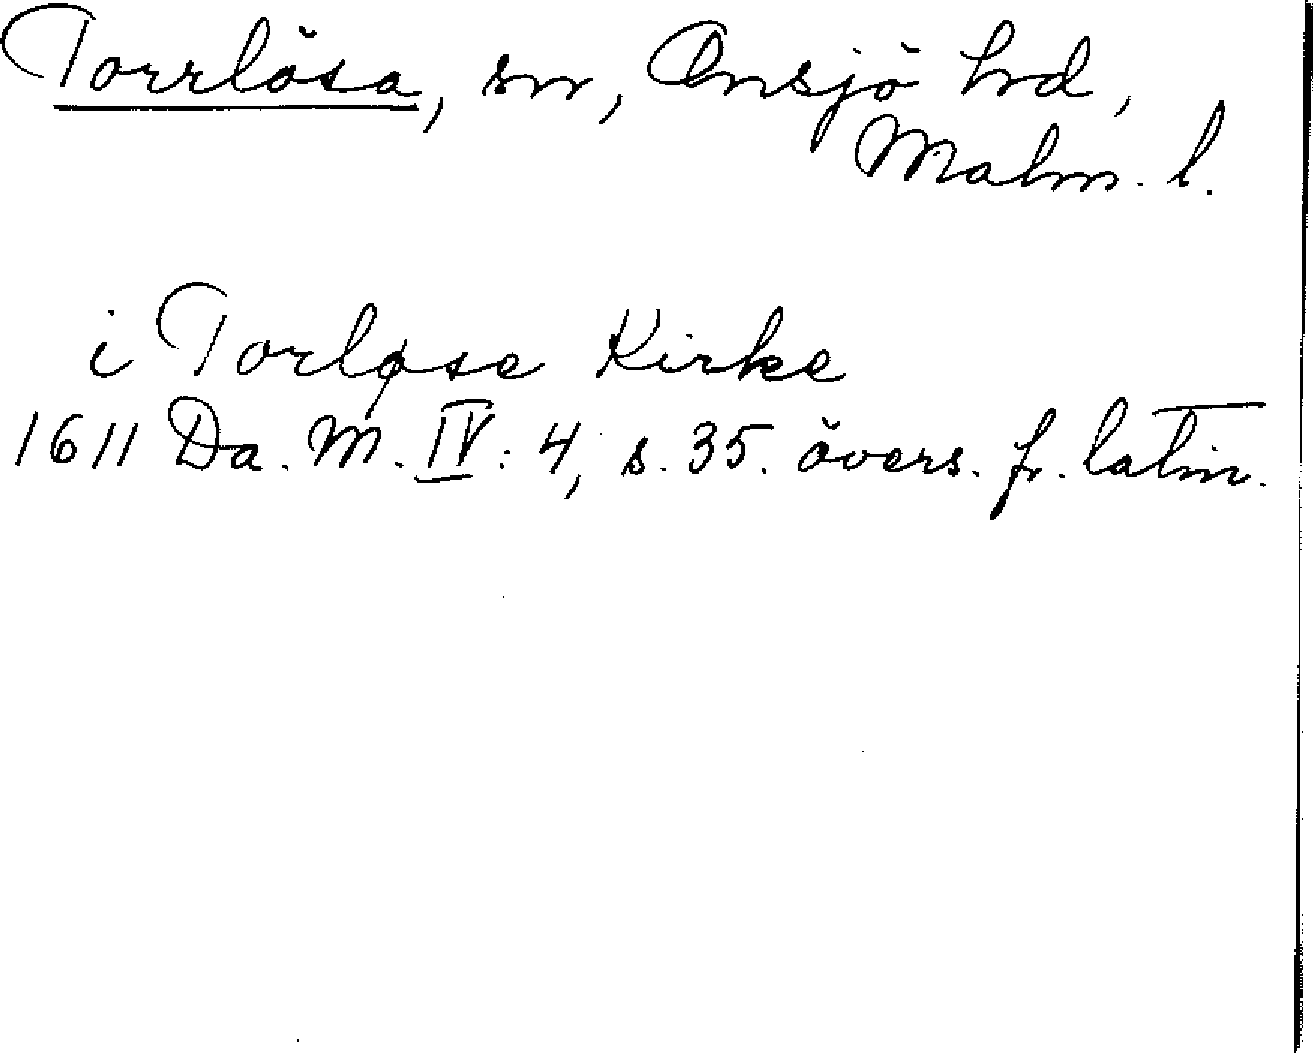 Torrlösa, sn, Onsjö hd,
Malm. l.
i Torløse Kirke
1611 Da. M. IV: 4, s. 35. övers. fr. latin.